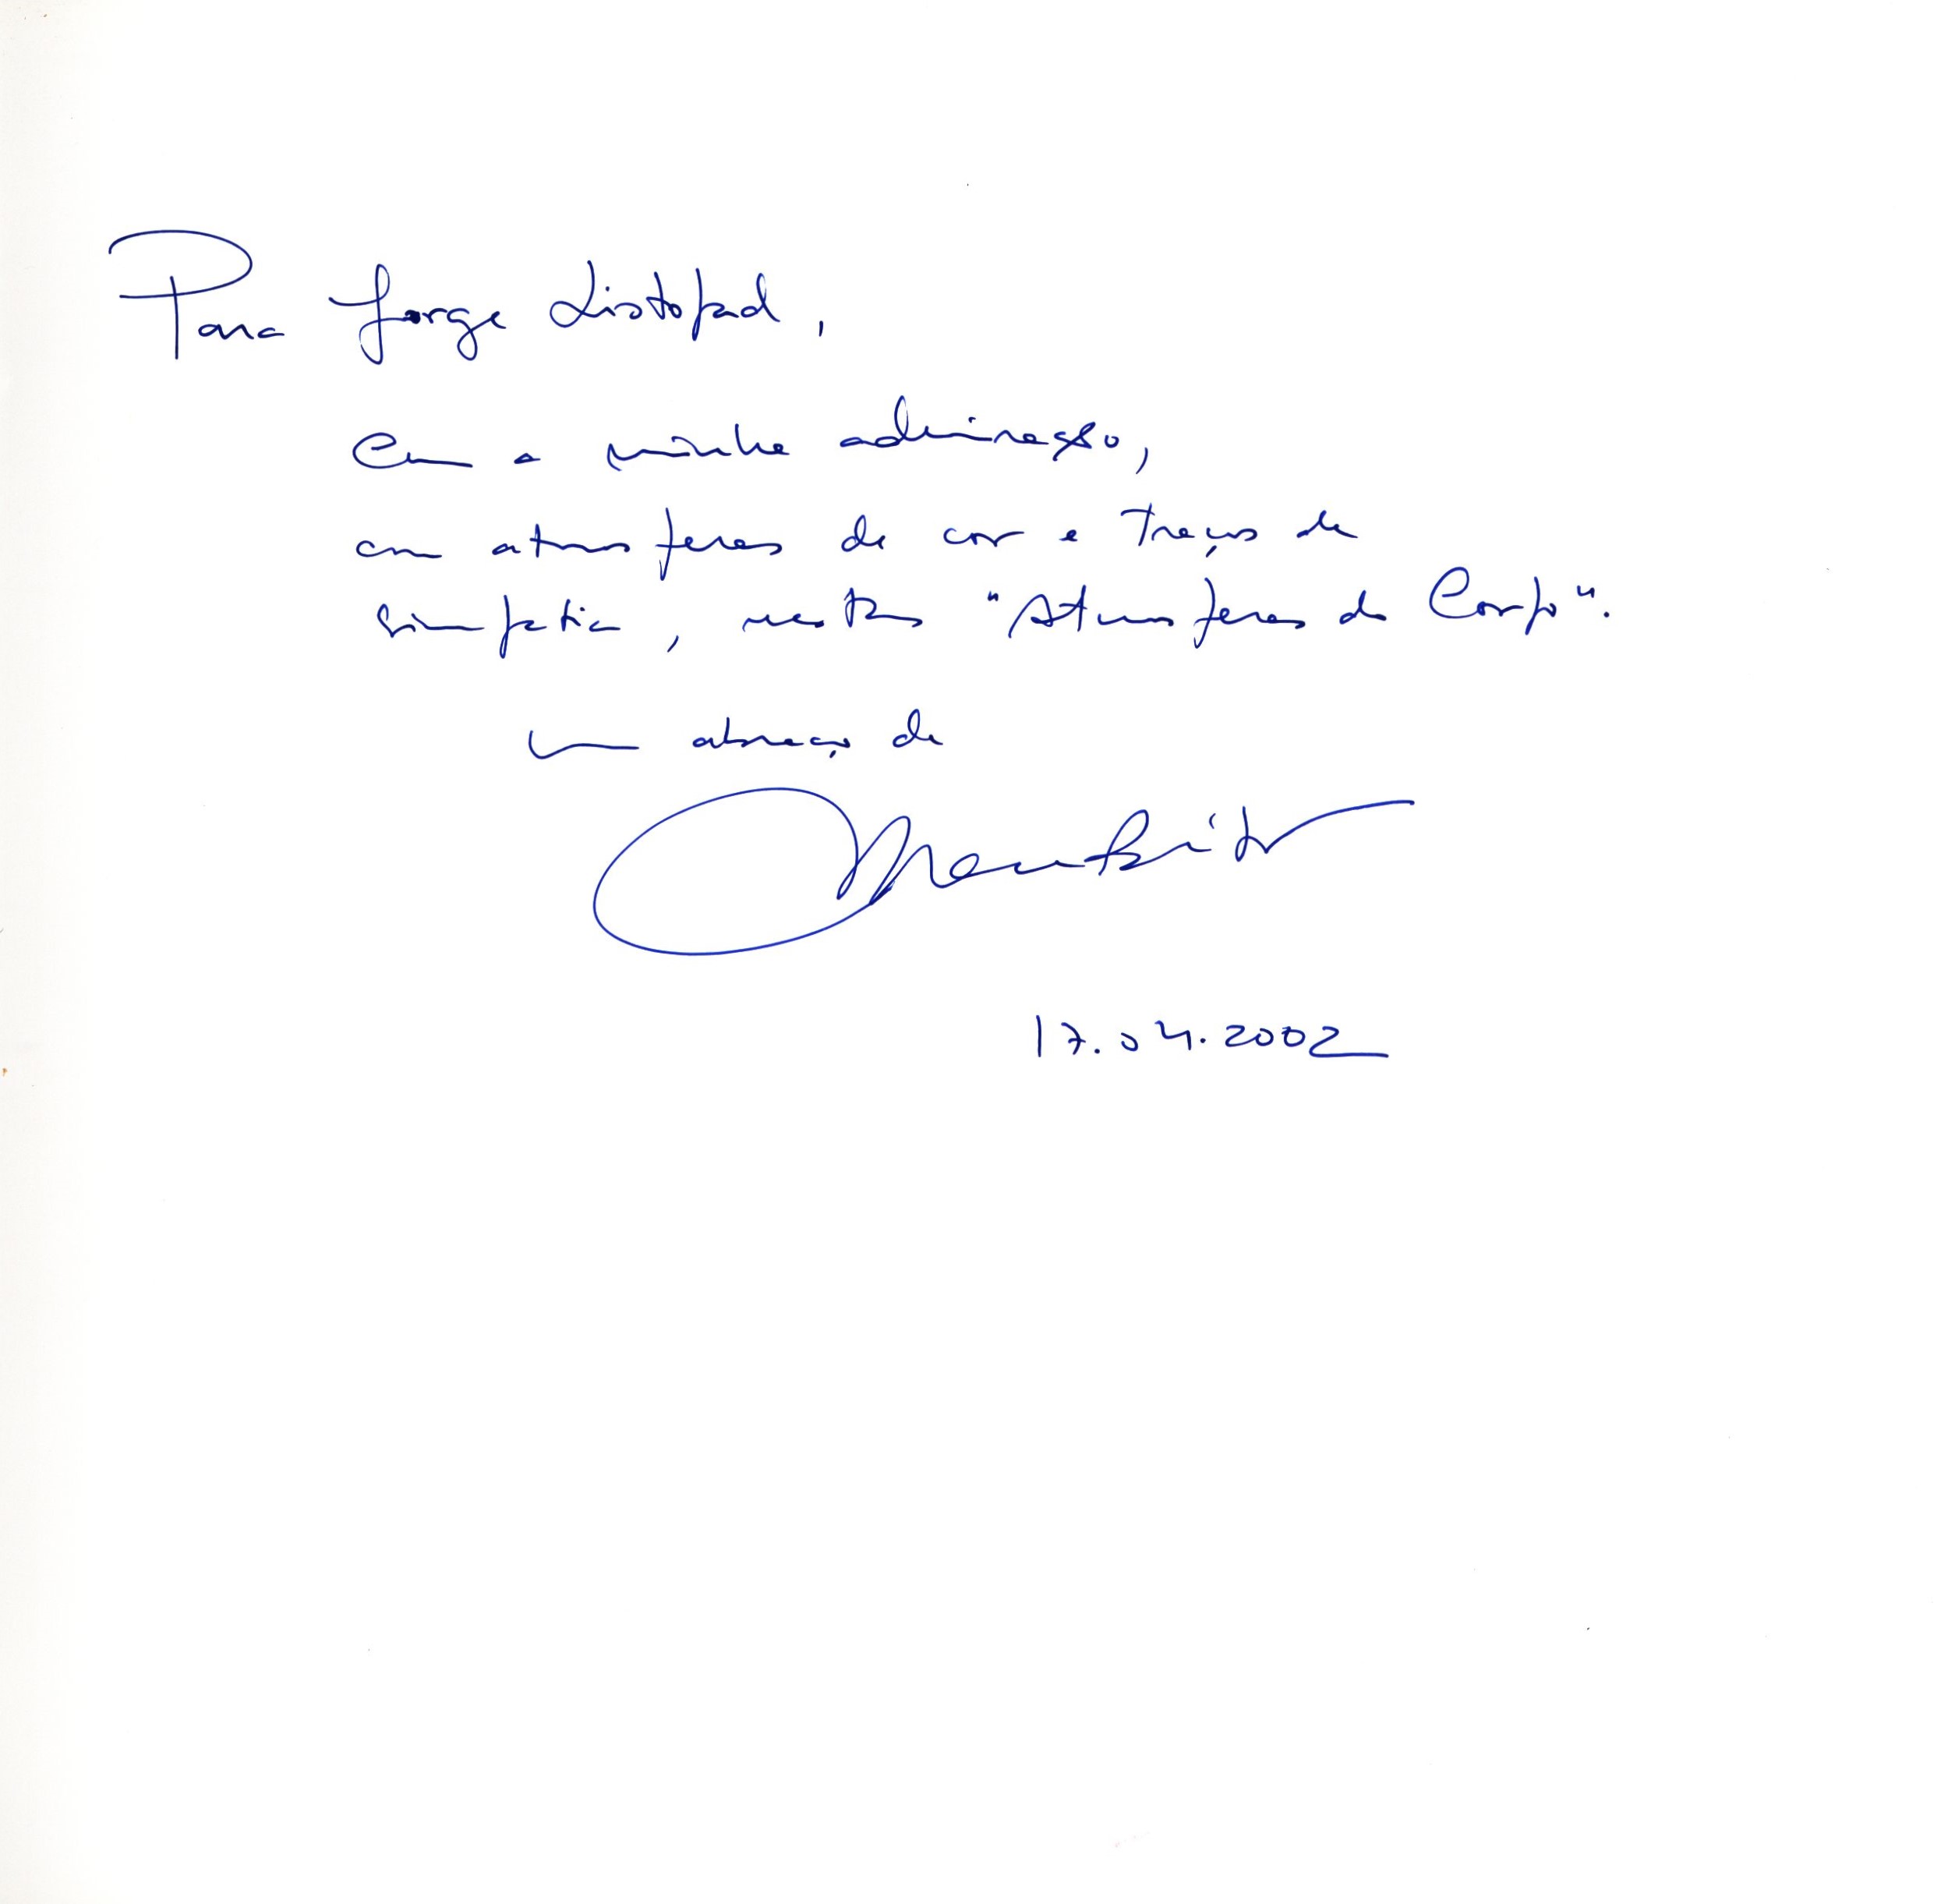 Para Jorge Listopad,
Com a minha admiração,
com atmosferas de cor e traços de
simpatia, nestas "Atmosferas do Corpo".
um abraço de
17.04.2002